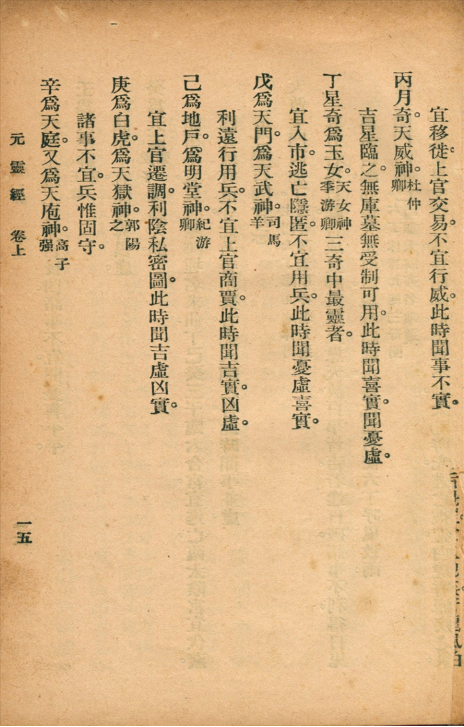 宜移徙。上官交易。不宜行威。此時聞事不實。
丙月奇天威神杜仲卿
吉星臨之。無庫墓無受制可用。此時聞喜實。聞憂虛。
丁星奇爲玉女。天女神季游卿三奇中最靈者。
宜入市逃亡隱匿。不宜用兵。此時聞憂虛喜實。
戊爲天門。爲天武神司馬羊
利遠行用兵。不宜上官商賈。此時聞吉實。凶虛。
己爲地戶。爲明堂神紀游卿
宜上官遷調。利陰私密圖。此時聞吉虛凶實。
庚爲白虎。爲天獄神郭陽之
諸事不宜。兵惟固守。
辛爲天庭。又爲天庖神高子強
元靈經 卷上
一五